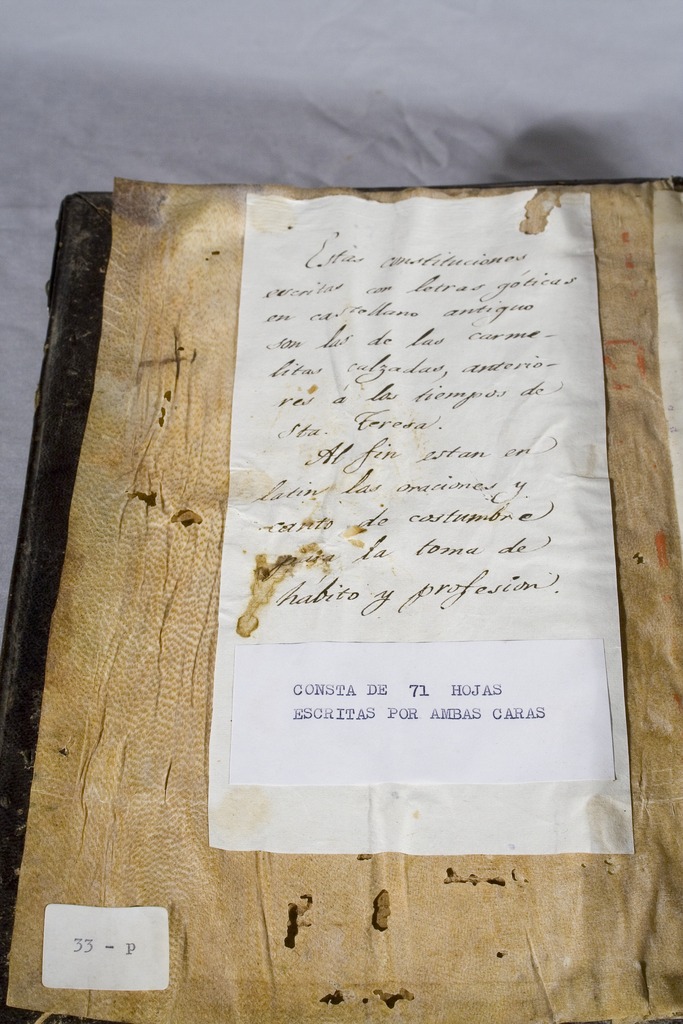 Estas constituciones
escritas con letras góticas
en castellano antiguo
son las de las carme-
litas calzadas, anterio-
res á los tiempos de
Sta. Teresa.
Al fin estan en
latin las oraciones y
canto de costumbre
para la toma de
hábito y profesion.
CONSTA DE 71 HOJAS
ESCRITAS POR AMBAS CARAS
33 - P